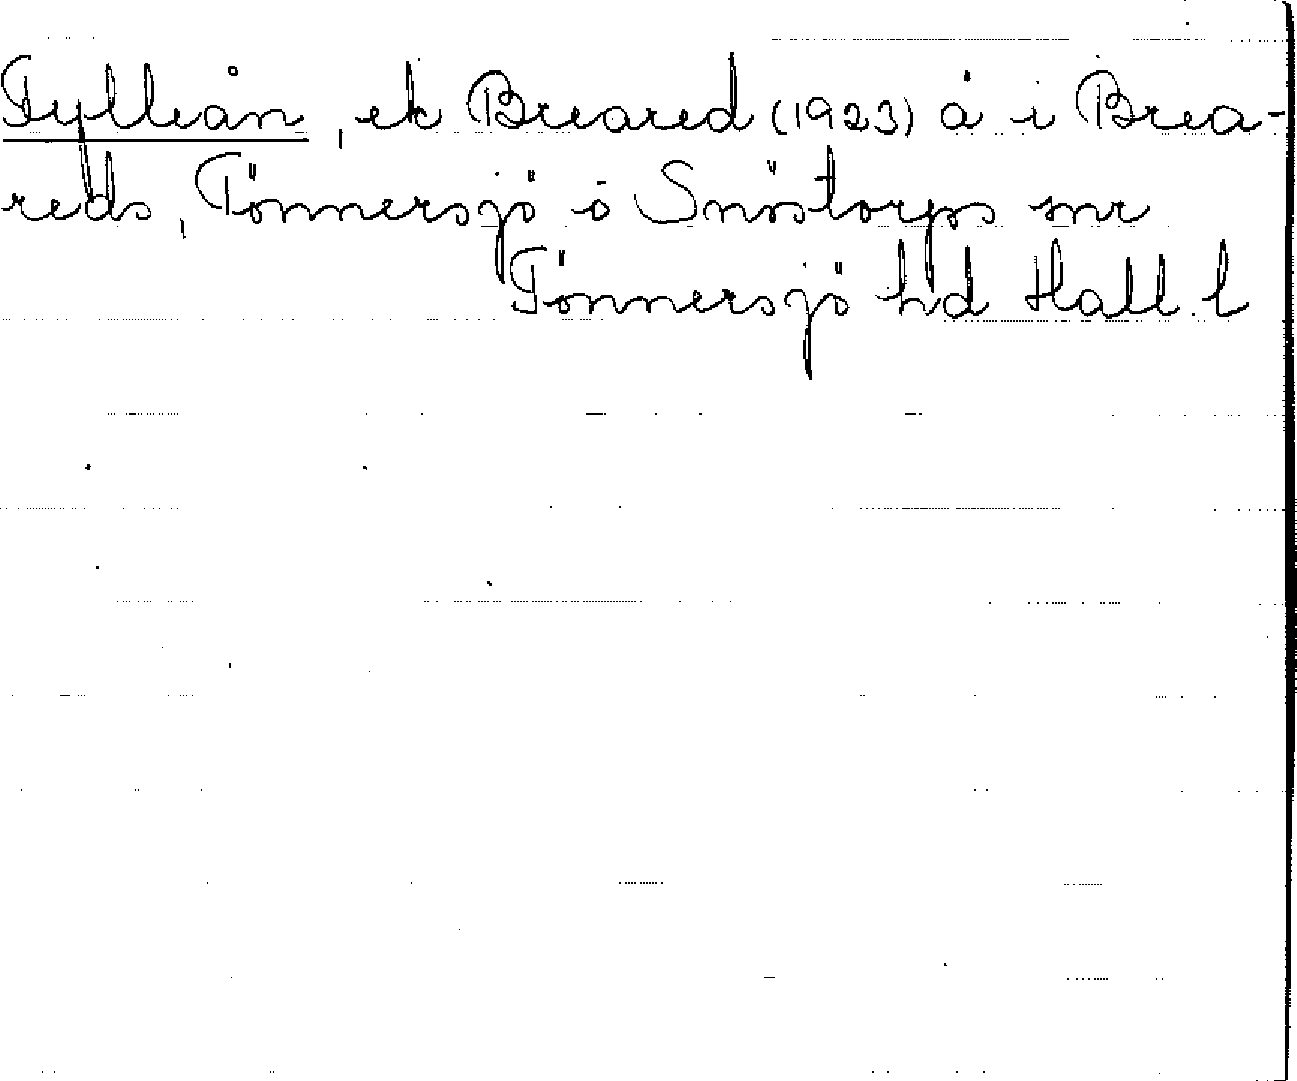 Fylleån, ek Breared (1923) å i Brea-
reds, Tönnersjö o Snöstorps snr
Tönnersjö hd Hall. l